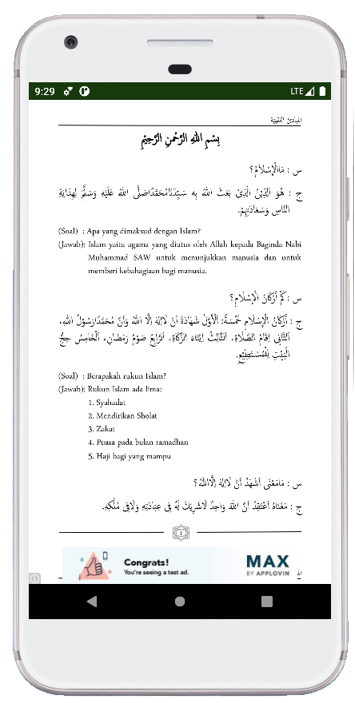 9:29
LTE
المبادئ الفقهية
بِسْمِ اللهِ الرَّحْمنِ الرَّحِيْمِ
س : مَاالْإِسْلَامُ؟
ج : هُوَ الدِّيْنُ الَّذِيْ بَعَثَ اللهُ بِهِ سَيِّدَنَامُحَمَّدًاصَلَّى اللهُ عَلَيْهِ وَسَلَّمَ لِهِدَايَةِ
النَّاسِ وَسَعَادَتِهِمْ.
(Soal) : Apa yang dimaksud dengan Islam?
(Jawab): Islam yaitu agama yang diutus oleh Allah kepada Baginda Nabi
Muhammad SAW untuk menunjukkan manusia dan untuk
memberi kebahagiaan bagi manusia.
س : كَمْ أَرْكَانُ الْإِسْلَامِ؟
ج : أَرْكَانُ الْإِسْلَامِ خَمْسَةٌ: اَلْأَوَّلُ شَهَادَةُ اَنْ لَااِلهَ اِلَّا اللهُ وَاَنَّ مُحَمَّدًارَسُوْلُ اللهِ،
اَلثَّانِى اِقَامُ الصَّلَاةِ، اَلثَّالِثُ اِيْتَاءُ الزَّكَاةِ، اَلرَّابِعُ صَوْمُ رَمَضَانَ، اَلْخَامِسُ حِجُّ
الْبَيْتِ لِلْمُسْتَطِيْعِ.
(Soal) : Berapakah rukun Islam?
(Jawab): Rukun Islam ada lima:
1. Syahadat
2. Mendirikan Sholat
3. Zakat
4. Puasa pada bulan ramadhan
5. Haji bagi yang mampu
س : مَامَعْنَى أَشْهَدُ أَنْ لَااِلهَ اِلَّااللهُ؟
ج : مَعْنَاهُ أَعْتَقِدُ أَنَّ اللهَ وَاحِدٌ لَاشَرِيْكَ لَهُ فِى عِبَادَتِهِ وَلَافِى مُلْكِهِ.
Congrats!
You're seeing a test ad.
MAX
BY APPLOVIN